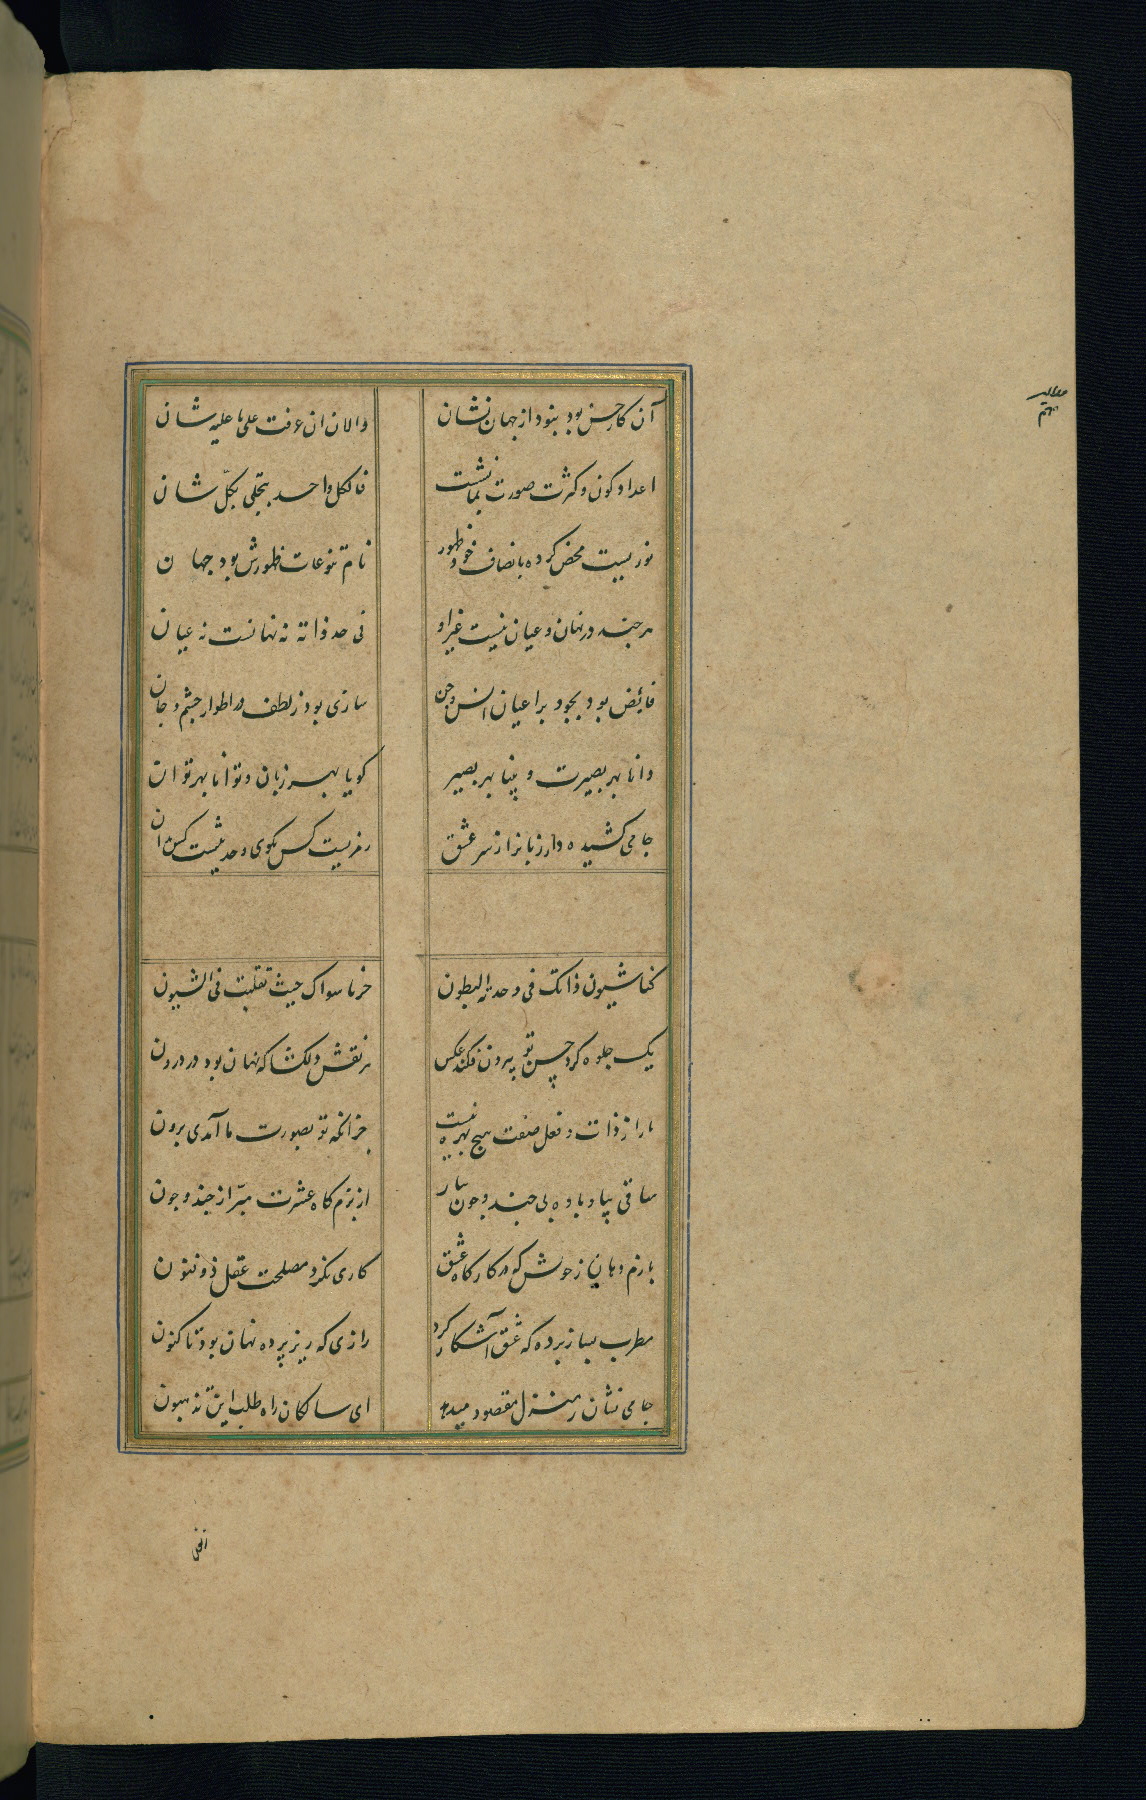 آن کان حسن بود و نبود از جهان نشان والان ان عرفت علی ما علیه شان
اعداد کون و کثرت صورت نمایشست فالکل واحد یتجلی بکل شان
نوریست محض کرده باوصاف خود ظهور نام تنوعات ظهورش بود جهان
هر چند در نهان و عیان نیست غیر او فی حد ذاته نه نهانست نه عیان
فائض بود بجود بر اعیان انس و جن ساری بود ز لطف در اطوار جسم و جان
دانا بهر بصیرت و بینا بهر بصیر کویا بهر زبان و توانا بهر توان
جامی کشیده دار زبانرا ز سر عشق رمزیست کس مکوی و حدیثیست کس مدان
کنا شیون ذاتک فی وحدة البطون حزنا سواک حیث تقلبت فی الشیون
یک جلوه کرد حسن تو بیرون فکند عکس هر نقش دلکشا که نهان بود در درون
ما را ز ذات و فعل و صفت هیچ بهره نیست جز انکه تو بصورت ما آمدی برون
ساقی بیا و باده بی چند و چون بیار از بزمکاه عشرت مبرا ز چند و چون
بازم رهان ز خویش که در کارکاه عشق کاری نکرد مصلحت عقل ذو فنون
مطرب بساز پرده که عشق آشکار کرد رازی که زیر پرده نهان بود تا کنون
جامی نشان ز منزل مقصود میدهد ای سالکان راه طلب این تذهبون